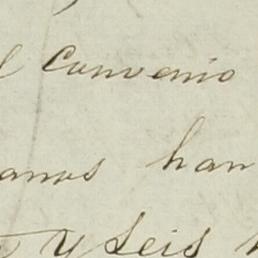 l Convenio
anos han
y seis